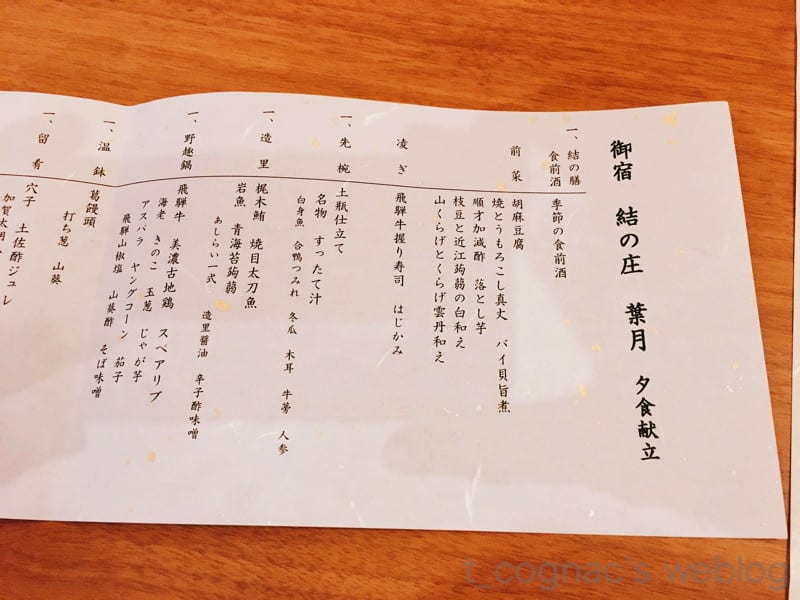 御宿 結の庄 葉月 夕食献立
一、結の膳
食前酒 季節の食前酒
前菜 胡麻豆腐
焼とうもろこし真丈 バイ貝旨煮
順才加減酢 落とし芋
枝豆と近江蒟蒻の白和え
山くらげとくらげ雲丹和え
凌ぎ 飛騨牛握り寿司 はじかみ
一、先椀 土瓶仕立て
名物 すったて汁
白身魚 合鴨つみれ 冬瓜 木耳 牛蒡 人参
一、造里 梶木鮪 焼目太刀魚
岩魚 青海苔蒟蒻
あしらい一式 造里醤油 辛子酢味噌
一、野趣鍋 飛騨牛 美濃古地鶏 スペアリブ
海老 きのこ 玉葱 じゃが芋
アスパラ ヤングコーン 茄子
飛騨山椒塩 山葵酢 そば味噌
一、温鉢 葛饅頭
打ち葱 山葵
一、留肴 穴子 土佐酢ジュレ
加賀太胡
t_cognac's weblog